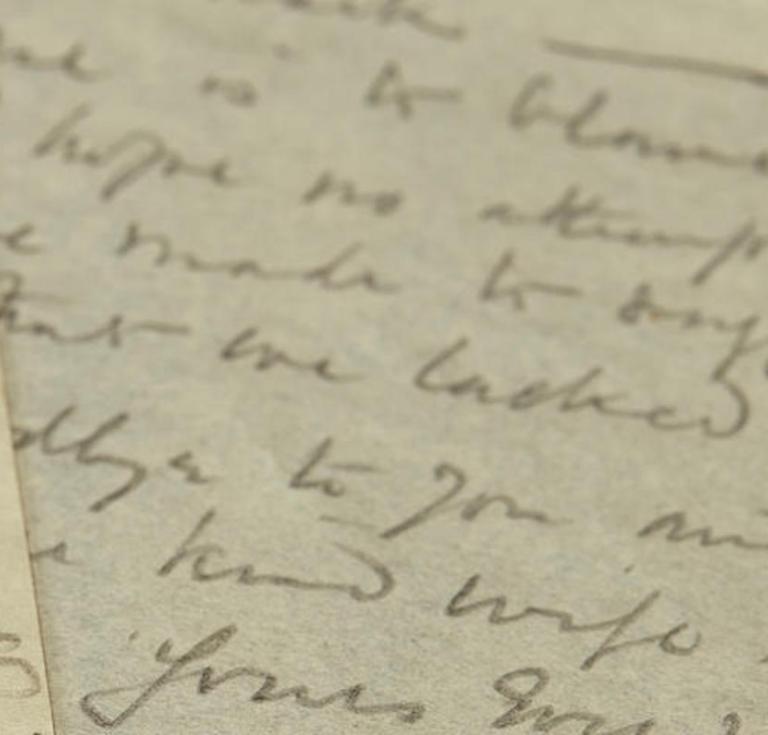 is to blame
hope no attempt
made to sug
that we lacked
dbye to you an
kind wife
Yours Ever